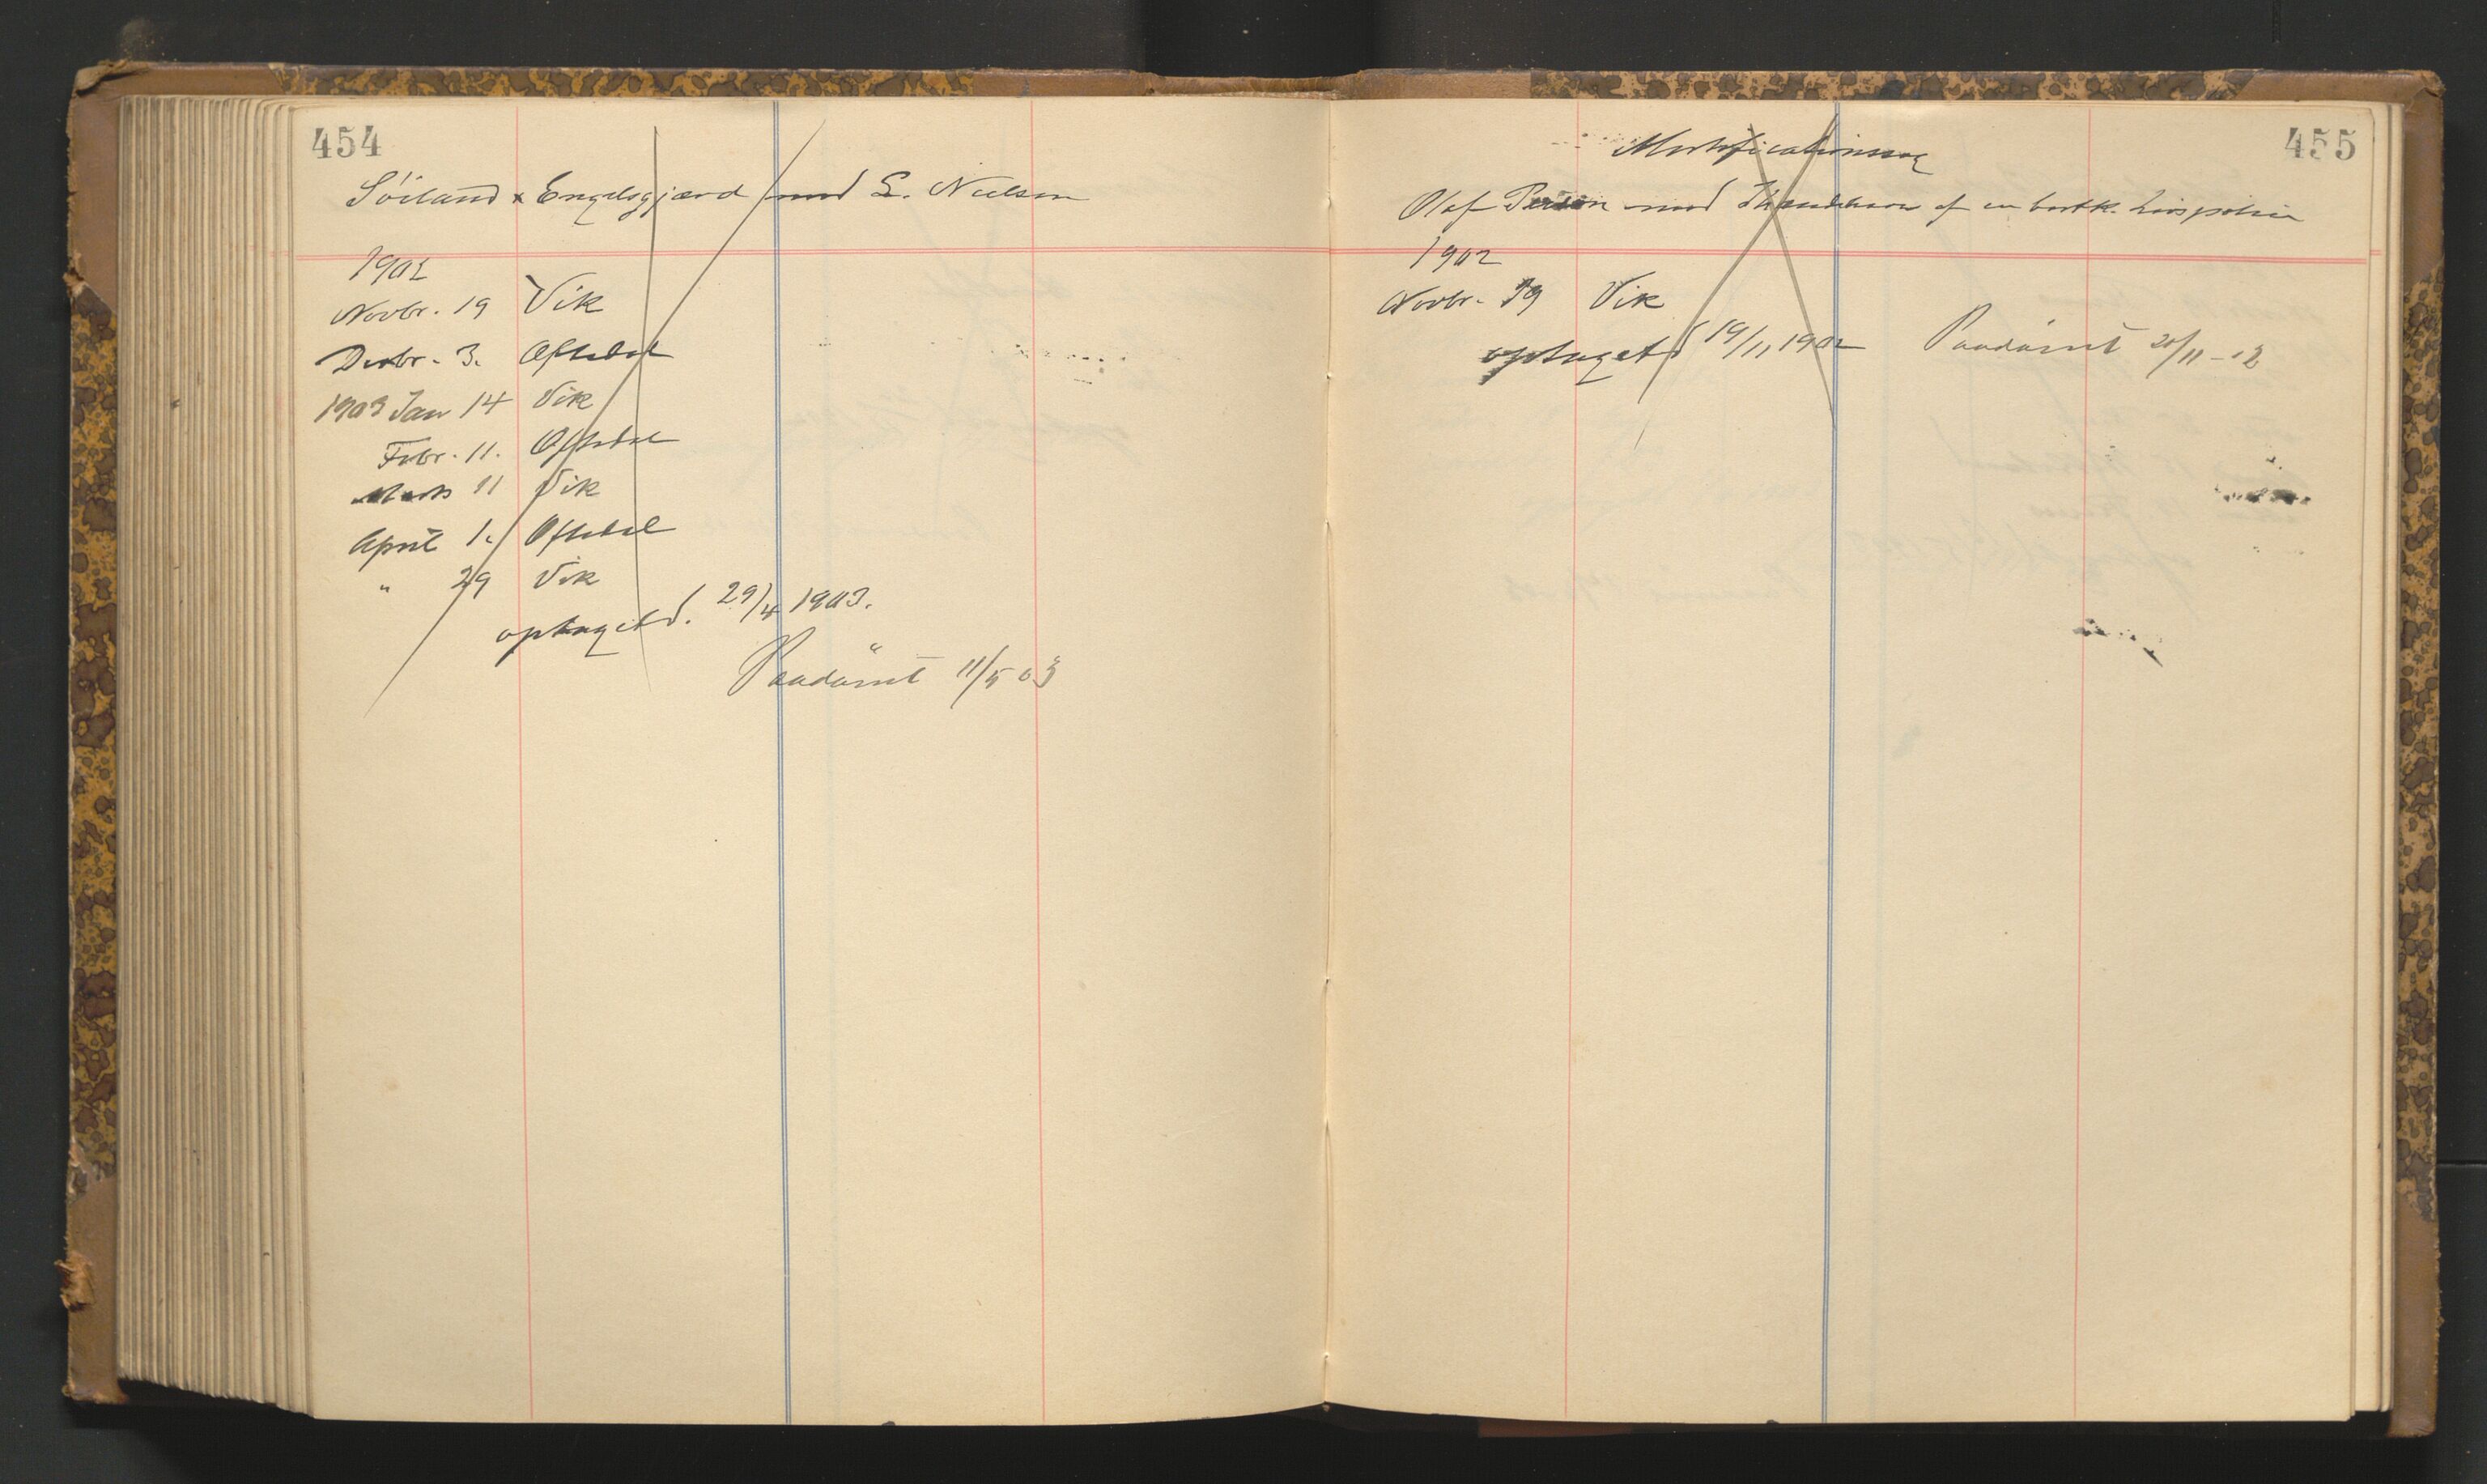 454
Söiland & Engelsgjærd mod L. Nielsen
1902
Novbr. 19 Vik
Decbr. 3. Oftedal
1903 Jan 14 Vik
Febr. 11. Oftedal
Marts 11 Vik
April 1. Oftedal
" 29 Vik
optaget d. 29/4 1903.
Paadömt 11/5 03
455
Mortificationssag
Olaf mod Ihændehaver af en bortk. Livspolice
1902
Novbr. 19 Vik
optaget d 19/11 1902 Paadömt 20/11 - 02